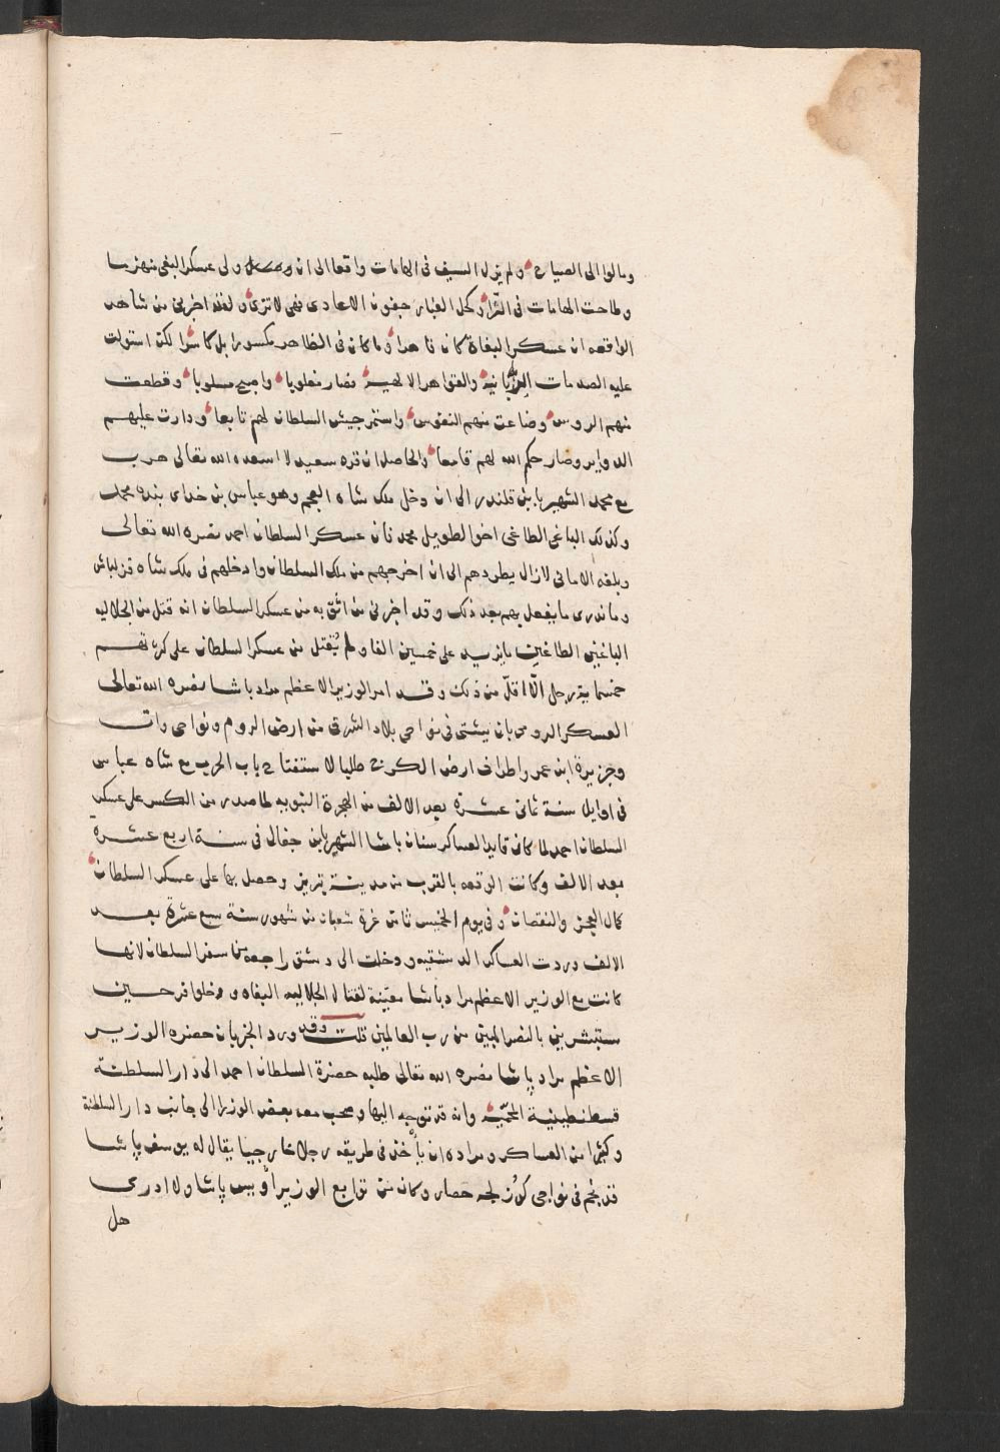 ومالوا الى الصياح ولم يزل السيف فى الهامات واقعا الى ان ولى عسكر البغى منهزما
وطاحت الهامات فى الثرا وكحل الغبار جفون الاعادى فهى لا ترى ولقد اخبرنى من شاهد
الواقعه ان عسكر البغاة كان قاهرا وما كان فى الظاهر مكسورا بل كاسرا لكن استولت
عليه الصدمات الربانية والقواهر الالهية فصار مغلوبا واصبح مسلوبا وقطعت
منهم الروس وضاعت منهم النفوس واستمر جيش السلطان لهم تابعا ودارت عليهم
الدواير وصار حكم الله لهم قامعا والحاصل ان قره سعيد لا اسعده الله تعالى هرب
مع محمد الشهير بابن قلندر الى ان دخل ملك شاه العجم وهو عباس بن خداى بنده محمد
وكذلك الباغى الطاغى اخو الطويل محمد فان عسكر السلطان احمد نصره الله تعالى
وبلغه الامانى لازال يطردهم الى ان اخرجهم من ملك السلطان وادخلهم فى ملك شاه قزلباش
وما ندرى ما يفعل بهم بعد ذلك وقد اخبرنى من اثق به من عسكر السلطان انه قتل من الجلاليه
الباغين الطاغين ما يزيد على خمسين الفا ولم يقتل من عسكر السلطان على كثرتهم
خمسماية رجل الا اقل من ذلك وقد امر الوزير الاعظم مراد باشا نصره الله تعالى
العسكر الرومى بان يشتى فى نواحى بلاد الشرق من ارض الروم ونواحى وان
وجزيرة ابن عمر واطراف ارض الكرج طلبا لاستفتاح باب الحرب مع شاه عباس
فى اوايل سنة ثمانى عشرة بعد الالف من الهجرة النبويه لما صدر من الكسر على عسكر
السلطان احمد لما كان قايد العساكر سنان باشا الشهير بابن جغال فى سنة اربع عشرة
بعد الالف وكانت الوقعه بالقرب من مدينة تبريز وحصل بها على عسكر السلطان
كمال العجز والنقصان وفى يوم الخميس ثامن غرة شعبان من شهور سنة سبع عشرة بعد
الالف وردت العساكر الدمشقيه ودخلت الى دمشق راجعة من سفر السلطان لانها
كانت مع الوزير الاعظم مراد باشا معينة لقتال الجلاليه البغاه ودخلوا فرحين
مستبشرين بالنصر المبين من رب العالمين قلت وقد ورد الخبر بان حضرة الوزير
الاعظم مراد باشا نصره الله تعالى طلبه حضرة السلطان احمد الى دار السلطنة
قسطنطينية المحمية وانه قد توجه اليها وصحب معه بعض الوزرا الى جانب دار السلطنة
وكثيرا من العساكر ومراده ان يأخذ فى طريقه رجلا خارجيا يقال له يوسف باشا
قد نجم فى نواحى كوزلجه حصار وكان من توابع الوزير اويس باشا ولا ادرى
هل